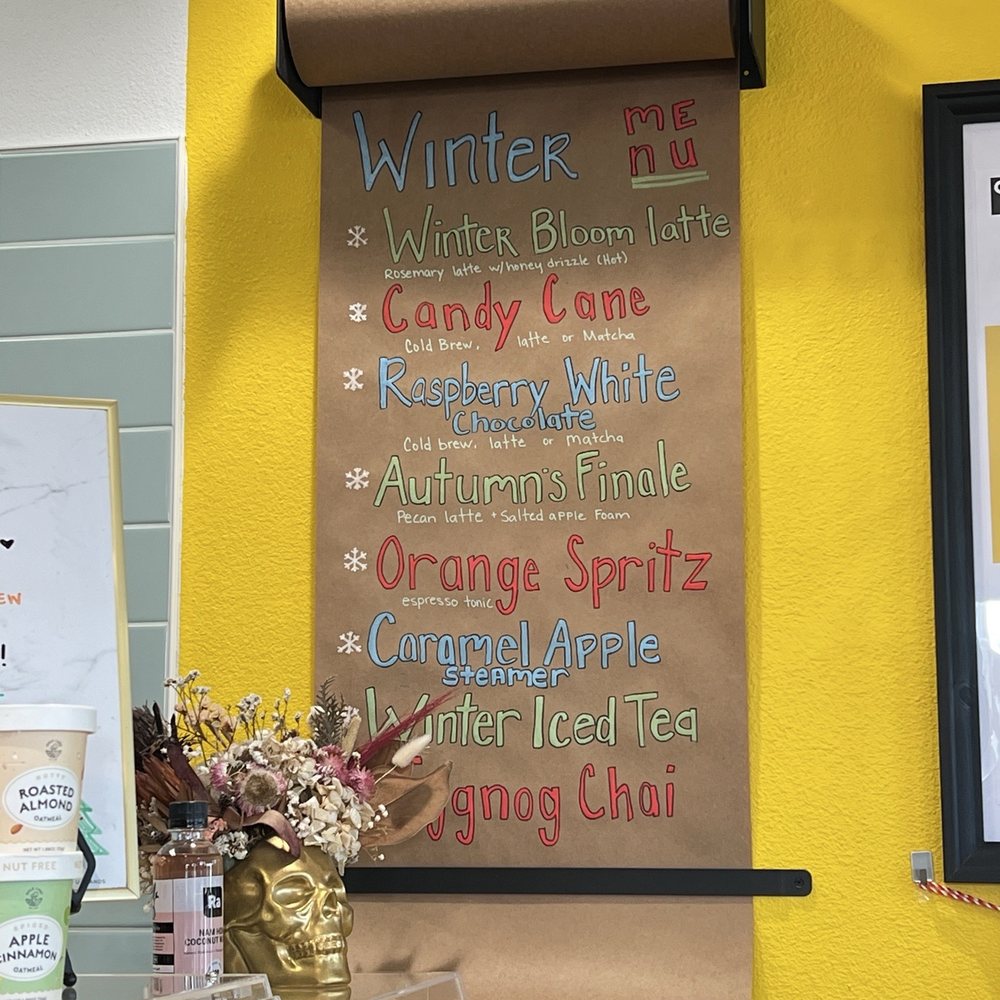 Winter
mE
nu
Winter Bloom latte
Rosemary latte w/honey drizzle (Hot)
Candy Cane
Cold Brew, latte or Matcha
Raspberry White
Chocolate
Cold brew, latte or matcha
Autumn's Finale
Pecan latte + Salted apple Foam
Orange Spritz
espresso tonic
Caramel Apple
steamer
Winter Iced Tea
Chai
EW
!
ROASTED
ALMOND
OATMEAL
NUT FREE
SPICED
APPLE
CINNAMON
OATMEAL
Ra
COCONUT